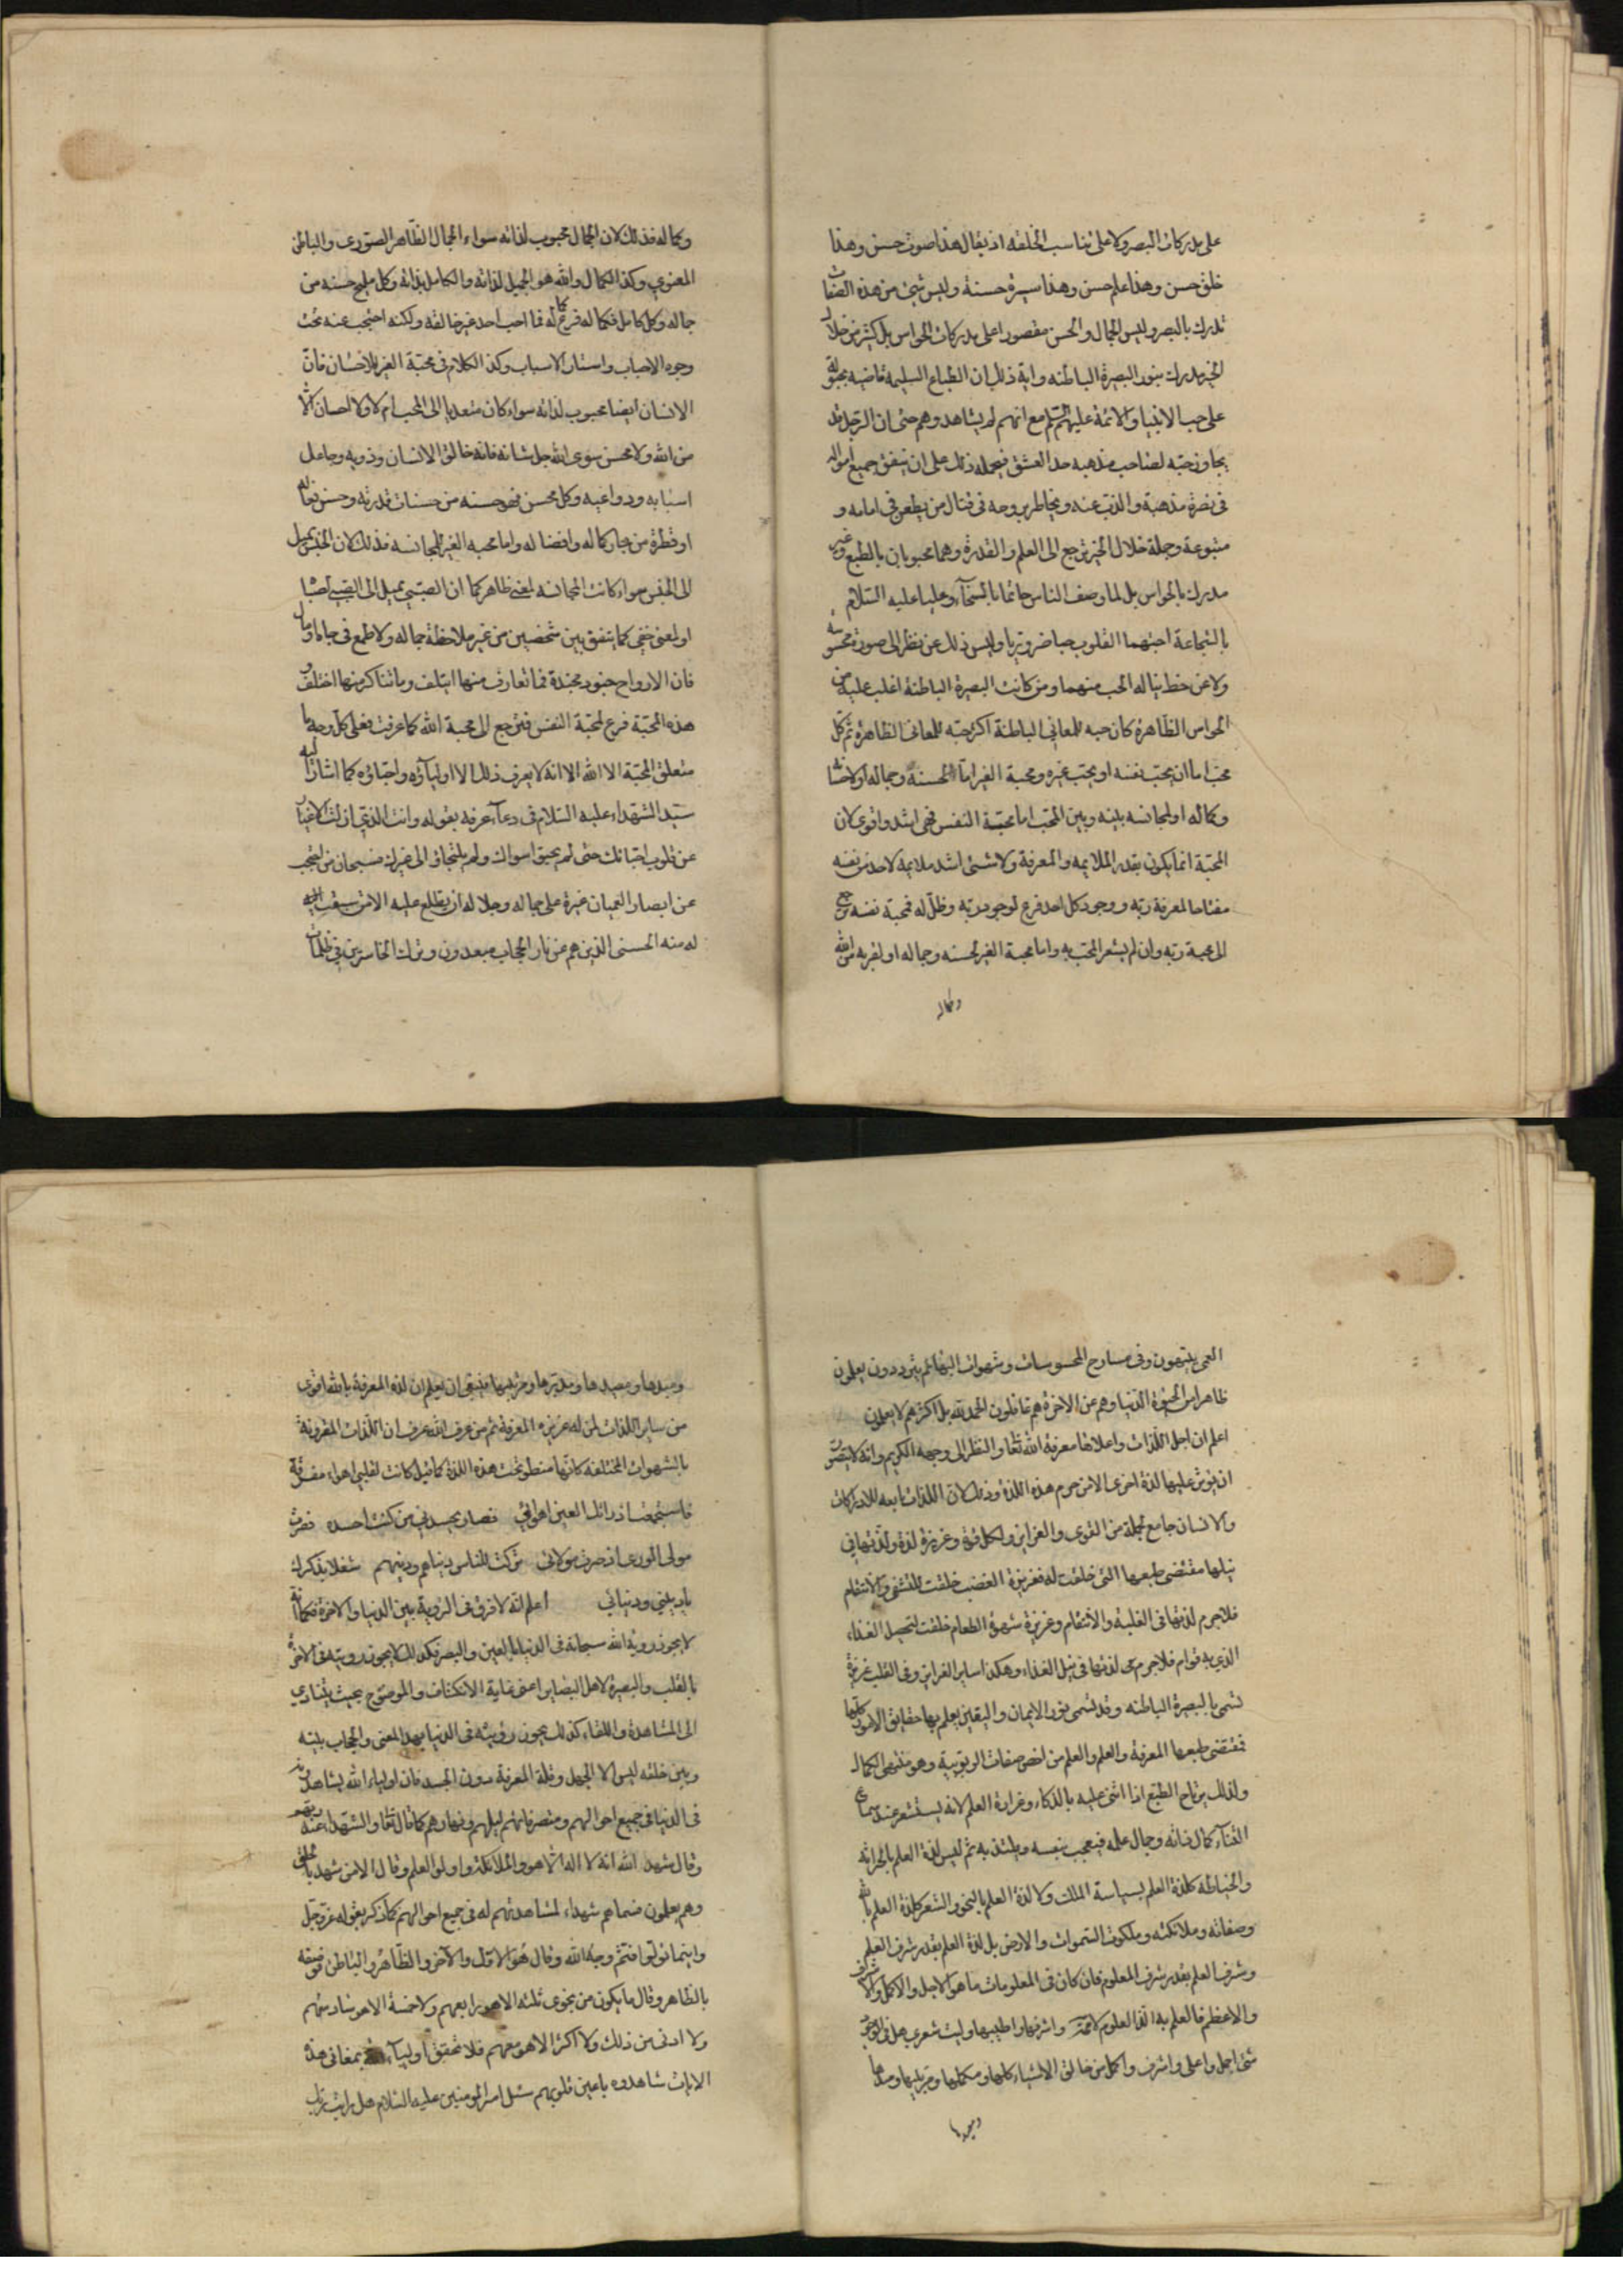 على مدركات البصر ولا على تناسب الخلقه اذ يقال هذا صوت حسن وهذا
خلق حسن وهذا علم حسن وهذا سيرة حسنة وليس شئ من هذه الصفات
تدرك بالبصر وليس الجمال والحسن مقصورا على مدركات الحواس بل كثير من خلال
الخير يدرك بنور البصيرة الباطنه واية ذلك ان الطباع السليمه قاضيه مجبولة
على حب الانبيا والائمة عليهم السلم مع انهم لم يشاهدوهم حتى ان الرجل قد
يجاوز حبّه لصاحب مذهبه حد العشق فيحمله ذلك على ان ينفق جميع امواله
فى نصرة مذهبة والذب عنه ويخاطر بروحه فى قتال من يطعن فى امامه و
متبوعة وجملة خلال الخير ترجع الى العلم والقدرة وهما محبوبان بالطبع وغير
مدرك بالحواس بل لما وصف الناس حاتما بالسخآء وعليا عليه السّلام
بالشجاعة احبّهما القلوب حبا ضروريا وليس ذلك عن نظر الى صورة محسوسه
ولا عن حظ يناله المحب منهما ومن كانت البصيرة الباطنة اغلب عليه من
الحواس الظّاهرة كان حبه للمعاني الباطنة اكثر حبّه للمعانى الظاهرة ثم كلّ
محب اما ان يحبّ نفسه او يحب غيره ومحبة الغير امّا لحسنة وجماله او لاحسانه
وكماله او لمجانسه بينه وبين المحب اما محبّة النفس فهى اشد واقوى لان
المحبّة انما يكون بقدر الملايمه والمعرفة ولا شئ اشد ملايمه لاحد من نفسه
مفتاحا لمعرفة ربّه ووجود كل احد فرع لوجود ربّه وظلّ له فمحبة نفسه ترجع
الى محبة ربّه وان لم يشعر المحب به واما محبة الغير لحسنه وجماله او لقربه من الله
وكماله
وكماله فذلك لان الجمال محبوب لذاته سواء الجمال الظّاهر الصّورى والباطن
المعنوي وكذا الكمال والله هو الجميل لذاته والكامل بذاته وكل مليح حسنه من
جماله وكل كامل فكماله فرع كماله فما احب احد غير خالقه ولكنه احتجب عنه تحت
وجوه الاحباب واستار الاسباب وكذا الكلام فى محبّة الغير للاحسان فانّ
الانسان ايضا محبوب لذاته سواء كان متعديا الى المحب ام لا ولا احسان الاّ
من الله ولا محسن سوى الله جل شانه فانه خالق الانسان وذويه وجاعل
اسبابه ودواعيه وكل محسن فهو حسنه من حسنات قدرته وحسن فعاله
او قطرة من بحار كماله وافضاله واما محبه الغير للمجانسه فذلك لان الجنس يميل
الى الجنس سواء كانت المجانسه لمعنى ظاهر كما ان الصّبي يميل الى الصّبى لصبا
او لمعنى خفى كما يتفق بين شخصين من غير ملاحظة جماله ولا طمع فى جاه او مال
فان الارواح جنود مجندة فما تعارف منها ايتلف وما تناكر منها اختلف و
هذه المحبّة فرع لمحبّة النفس فترجع الى محبة الله كما عرفت فعلى كل وجه ما
متعلق المحبّة الا الله الا انه لا يعرف ذلك الا اوليآؤه واحباؤه كما اشار اليه
سيّد الشهداء عليه السّلام فى دعآء عرفه بقوله وانت الذي ازلت الاغيار
عن قلوب احبائك حتى لم يحبوا سواك ولم يلتجاؤا الى غيرك فسبحان من احتجب
عن ابصار العميان غيرة على جماله وجلاله ان يطلع عليه الا من سبقت
له منه الحسنى الذين هم عن نار الحجاب مبعدون وترك الخاسرين فى ظلمات
العمى يتيهون وفى مسارح المحسوسات وشهوات البهائم يترددون يعلمون
ظاهرا من الحيوة الدّنيا وهم عن الاخرة هم غافلون الحمد لله بل اكثرهم لا يعلمون
اعلم ان اجل اللذات واعلاها معرفة الله تعالى والنظر الى وجهه الكريم وانه لا يتصور
ان يوثر عليها لذة اخرى الا من حرم هذه اللذة وذلك لان اللذات تابعه للادراكات
والانسان جامع لجملة من القوى والغرايز ولكل قوة وغريزة لذة ولذّتها فى
نيلها مقتضى طبعها التى خلقت له فغريزة الغضب خلقت للتشفى والانتقام
فلاجرم لذتها فى الغلبة والانتقام وغريزة شهوة الطعام خلقت لتحصيل الغذاء
الذي به قوام فلاجرم لذتها فى نيل الغذاء وهكذا ساير الغرايز وفى القلب غريزة
تسمى بالبصيرة الباطنه وقد تسمى نور الايمان واليقين يعلم بها حقايق الامور كلها
فمقتضى طبعها المعرفة والعلم والعلم من اخص صفات الربوبية وهو منتهى الكمال
ولذلك يرتاح الطبع اذا اثنى عليه بالذكاء وغزارة العلم لانه يستشعر عند سماع
الثنآء كمال ذاته وجمال علمه فيعجب بنفسه ويلتذ به ثم ليس لذة العلم بالحراثه
والخياطه كلذة العلم بسياسة الملك ولا لذة العلم بالنحو والشعر كلذة العلم بالله
وصفاته وملائكته وملكوت السّموات والارض بل لذة العلم بقدر شرف العلم
وشرف العلم بقدر شرف المعلوم فان كان فى المعلومات ما هو الاجل والاكمل والاشرف
والاعظم فالعلم به الذ العلوم لا محة واشرفها واطيبها وليت شعري هل فى الوجود
شئ اجل واعلى واشرف واكمل من خالق الاشياء كلها ومكملها ومزينها ومبداها
ومبدها ومعيدها ومدبّرها ومرتبها فينبغى ان يعلم ان لذة المعرفة بالله اقوى
من ساير اللذات لمن له غريزه المعرفة ثم من عرف الله عرف ان اللّذات المقرونة
بالشهوات المختلفه كانّها منطو تحت هذه اللذة كما قيل كانت لقلبي اهواء مفرقة
فاستجمعت اذ راتك العين اهوائي فصار يحسدني من كنت احسده فصرت
مولى الورى اذ صرت مولائى تركت للناس دنياهم ودينهم شغلا بذكرك
يا ديني ودنيائي اعلم انّه لا فرق فى الرؤية بين الدنيا والاخرة فكما انه
لا يجوز روية الله سبحانه فى الدنيا بالعين والبصر فكذلك لا يجوز رويته فى الاخرة
بالقلب والبصيرة لاهل البصاير اعنى غاية الانكشاف والوضوح بحيث يتنادى
الى المشاهدة واللقاء كذلك يجوز رؤيته فى الدنيا بهذا المعنى والحجاب بينه
وبين خلقه ليس الا الجهل وقلة المعرفة دون الجسد فان اولياء الله يشاهدونه
فى الدنيا فى جميع احوالهم ومتصرفاتهم ليلهم ونهارهم كما قال تعالى والشّهداء عند ربهم
وقال شهد الله انه لا اله الا هو والملائكة واولوا العلم وقال الا من شهد بالحق
وهم يعلمون فسماهم شهداء لمشاهدتهم له فى جميع احوالهم كما ذكر بقوله عز وجل
واينما تولّوا فثمّ وجه الله وقال هو الاوّل والآخر والظّاهر والباطن فوصفه
بالظاهر وقال ما يكون من نجوى ثلثه الا هو رابعهم ولا خمسة الا هو سادسهم
ولا ادنى من ذلك ولا اكثر الا هو معهم فلا تحقق اوليآءه بمعانى هذه
الايات شاهدوه باعين قلوبهم سئل امير المومنين عليه السّلام هل رايت ربك